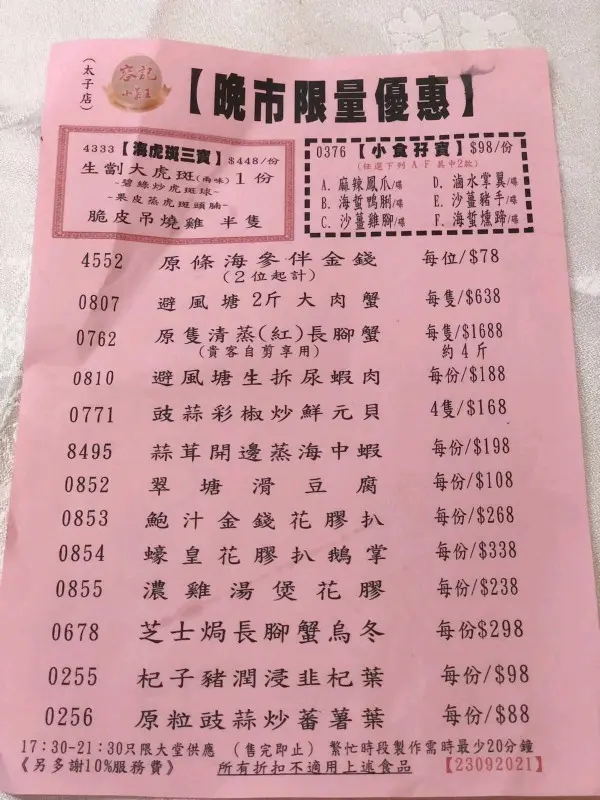 (太子店)
容記
小菜王
【晚市限量優惠】
4333【海虎斑三寶】$448/份
生劏大虎斑(兩味)1份
-碧綠炒虎斑球-
-果皮蒸虎斑頭腩-
脆皮吊燒雞 半隻
0376【小食孖寶】$98/份
(任選下列A-F其中2款)
A. 麻辣鳳爪/碟 D. 滷水掌翼/碟
B. 海蜇鴨脷/碟 E. 沙薑豬手/碟
C. 沙薑雞腳/碟 F. 海蜇燻蹄/碟
4552 原條海參伴金錢 每位/$78
(2位起計)
0807 避風塘2斤大肉蟹 每隻/$638
0762 原隻清蒸(紅)長腳蟹 每隻/$1688
(貴客自剪享用) 約4斤
0810 避風塘生拆尿蝦肉 每份/$188
0771 豉蒜彩椒炒鮮元貝 4隻/$168
8495 蒜茸開邊蒸海中蝦 每份/$198
0852 翠塘滑豆腐 每份/$108
0853 鮑汁金錢花膠扒 每份/$268
0854 蠔皇花膠扒鵝掌 每份/$338
0855 濃雞湯煲花膠 每份/$238
0678 芝士焗長腳蟹烏冬 每份$298
0255 杞子豬潤浸韭杞葉 每份/$98
0256 原粒豉蒜炒蕃薯葉 每份/$88
17:30-21:30只限大堂供應 (售完即止) 繁忙時段製作需時最少20分鐘
《另多謝10%服務費》 所有折扣不適用上述食品 【23092021】